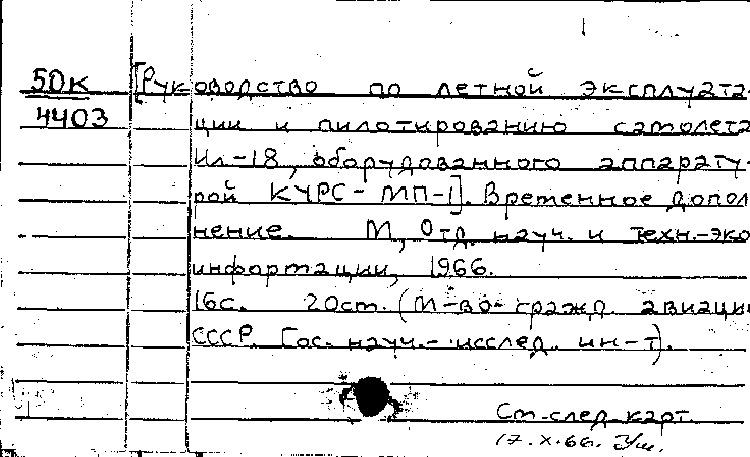 50к [Руководство по летной эксплуата-
4403 ции и пилотированию самолета
Ил-18, оборудованного аппарату-
рой КУРС-МП-1]. Временное допол
нение. М, Отд. науч. и техн.-эко
информации, 1966.
16с. 20см. (М-во гражд. авиации
СССР. Гос. науч.-исслед. ин-т).
См. след. карт.
17.X.66.